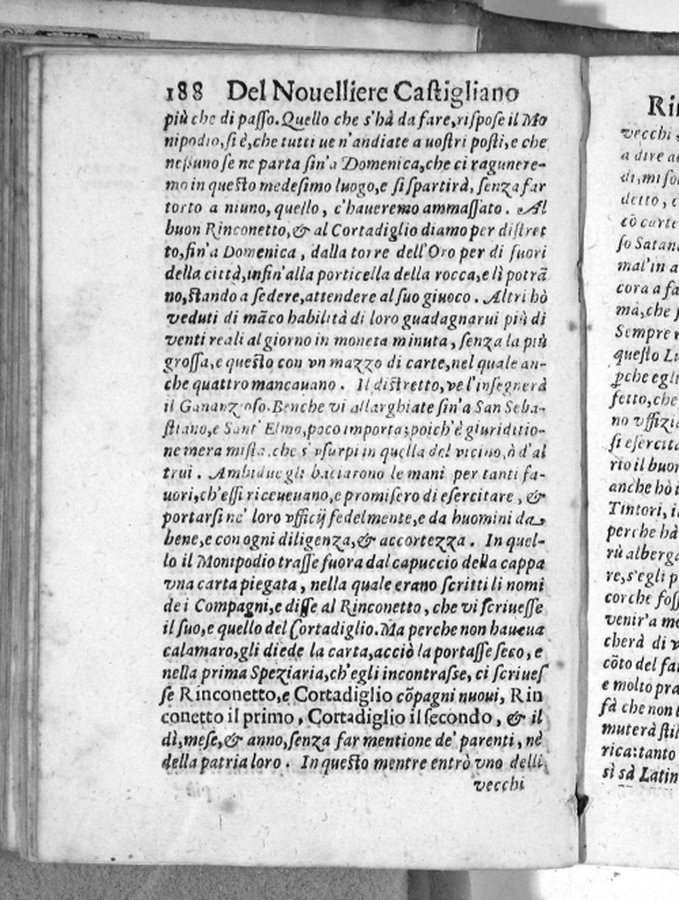 188 Del Nouelliere Castigliano
più che di passo. Quello che s'hà da fare, rispose il Mo
nipodio, si è, che tutti ue n'andiate a uostri posti, e che
nessuno se ne parta sin'a Domenica, che ci ragunere-
mo in questo medesimo luogo, e si spartirà, senza far
torto a niuno, quello, c'haueremo ammassato. Al
buon Rinconetto, & al Cortadiglio diamo per distret
to, sin'a Domenica, dalla torre dell'Oro per di fuori
della città, insin'alla porticella della rocca, e lì potrã
no, stando a sedere, attendere al suo giuoco. Altri hò
veduti di mãco habilità di loro guadagnarui più di
venti reali al giorno in moneta minuta, senza la più
grossa, e questo con vn mazzo di carte, nel quale an-
che quattro mancauano. Il distretto, ve l'insegnerà
il Gananzoso. Benche vi allarghiate sin'a San Seba-
stiano, e Sant' Elmo, poco importa; poich'è giuriditio-
ne mera mista, che s'vsurpi in quella del vicino, ò d'al
trui. Ambidue gli baciarono le mani per tanti fa-
uori, ch'essi riceueuano, e promisero di esercitare, &
portarsi ne' loro vfficij fedelmente, e da huomini da
bene, e con ogni diligenza, & accortezza. In quel-
lo il Monipodio trasse fuora dal capuccio della cappa
vna carta piegata, nella quale erano scritti li nomi
de i Compagni, e disse al Rinconetto, che vi scriuesse
il suo, e quello del Cortadiglio. Ma perche non haueua
calamaro, gli diede la carta, acciò la portasse seco, e
nella prima Speziaria, ch'egli incontrasse, ci scriues
se Rinconetto, e Cortadiglio cõpagni nuoui, Rin
conetto il primo, Cortadiglio il secondo, & il
dì, mese, & anno, senza far mentione de' parenti, nè
della patria loro. In questo mentre entrò vno delli
vecchi
Rin
vecchi
a dire
di, mi
detto,
cõ carte
so Satan
mal'in a
cora a fa
ma, che
Sempre
questo
perche egli
fetto, che
no vffizi
si esercita
rio il buon
anche hò
Tintori,
perche hà
rù alberg
re, s'egli p
corche foss
venir'a mo
cherà di
cõto del fa
e molto pra
fà che non
muterà stil
rica: tanto
sì sà Latin